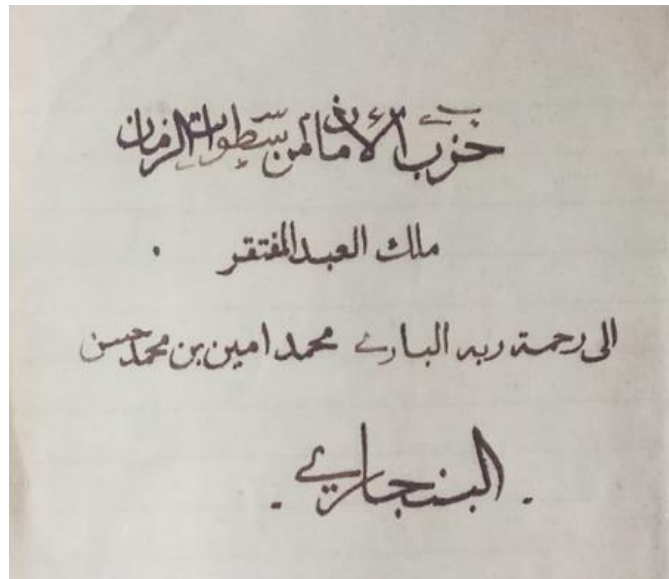 حزب الأمان من سطوات الزمان
ملك العبد المفتقر
الى رحمة ربه الباري محمد امين بن محمد حسن
البنجاري